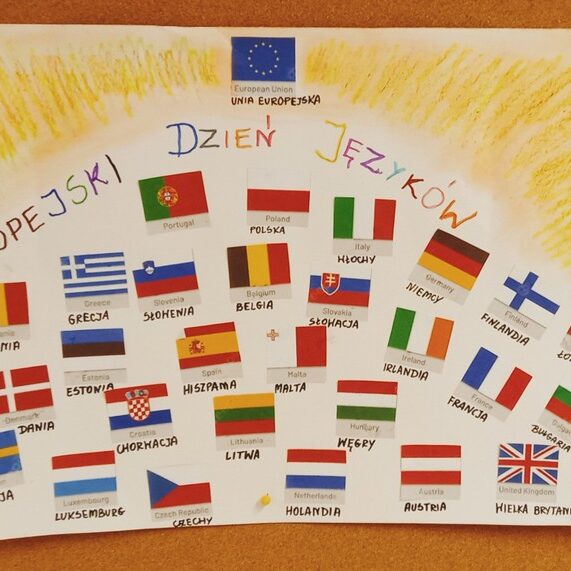 European Union
UNIA EUROPEJSKA
OPEJSKI DZIEŃ JĘZYKÓW
Portugal
Poland
POLSKA
Italy
WŁOCHY
Germany
NIEMCY
Greece
GRECJA
Slovenia
SŁOWENIA
Belgium
BELGIA
Slovakia
SŁOWACJA
Finland
FINLANDIA
ania
NIA
Estonia
ESTONIA
Spain
HISZPANIA
Malta
MALTA
Ireland
IRLANDIA
France
FRANCJA
Denmark
DANIA
Croatia
CHORWACJA
Lithuania
LITWA
Hungary
WĘGRY
JA
Luxembourg
LUKSEMBURG
Czech Republic
CZECHY
Netherlands
HOLANDIA
Austria
AUSTRIA
United Kingdom
WIELKA BRYTAN